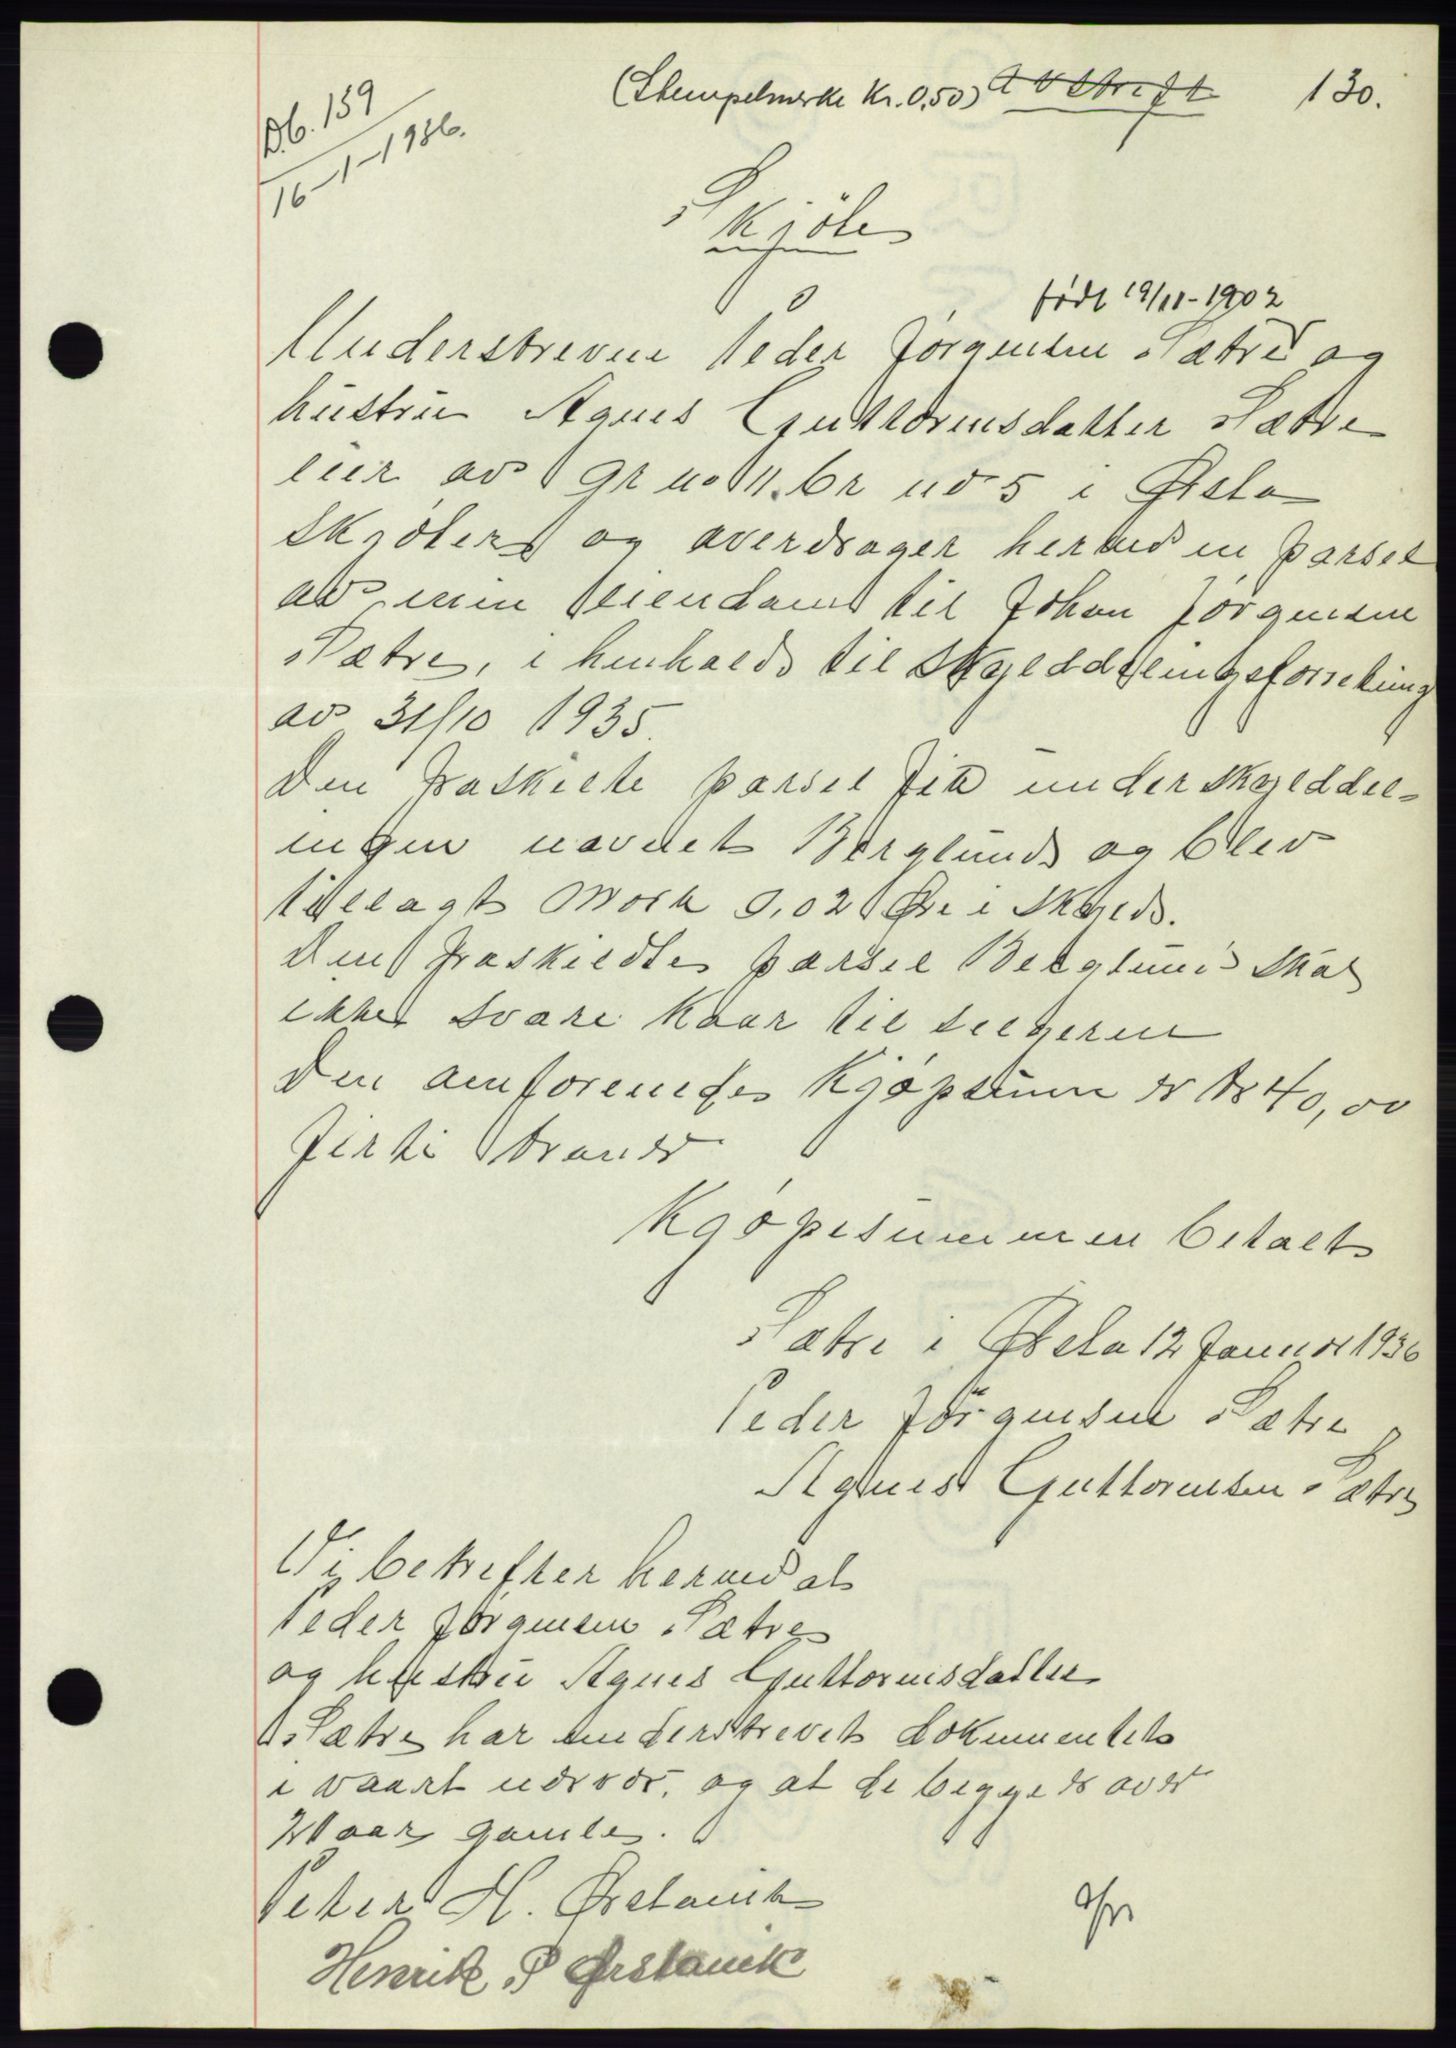 (Stempelmerke Kr. 0,50) Avskrift 130.
Db. 159
16-1-1936.
Skjöte
født 19/11-1902
Underskrevne Peder Jørgensen Sætre og
hustru Agnes Guttormsdatter Sætre
eier av gr no 11. br no 5 i Ørsta
skjøter og overdrager herved en parsel
av min eiendom til Johan Jørgensen
Sætre, i henhold til skylddelingsforretning
av 31/10 1935.
Den fraskilte parsel fik under skylddel-
ingen navnet Berglund og blev
tillagt Mark 0,02 Øre i skyld.
Den fraskildte parsel Berglund skal
ikke svare Kaar til selgeren
Den omforenede Kjøpsum er kr 40,00
firti kroner
Kjøpesummen betalt
Sætre i Ørsta 12 Januar 1936
Peder Jørgensen Sætre
Agnes Guttormsen Sætre
Vi betrefter herved at
Peder Jørgensen Sætre
og hustru Agnes Guttormsdatter
Sætre har underskrevet dokumentet
i vaart nærvær, og at de begge er over
21 aar gamle.
Peter H. Ørstavik
Henrik P Ørstavik